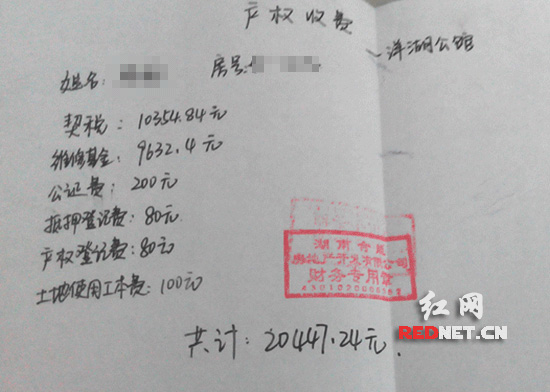 产权收费
洋湖公馆
姓名:
房号:
契税: 10354.84元
维修基金: 9632.4元
公证费: 200元
抵押登记费: 80元
产权登记费: 80元
土地使用工本费: 100元
湖南
房地产开发有限公司
财务专用章
共计: 20447.24元.
红网
REDNET.CN